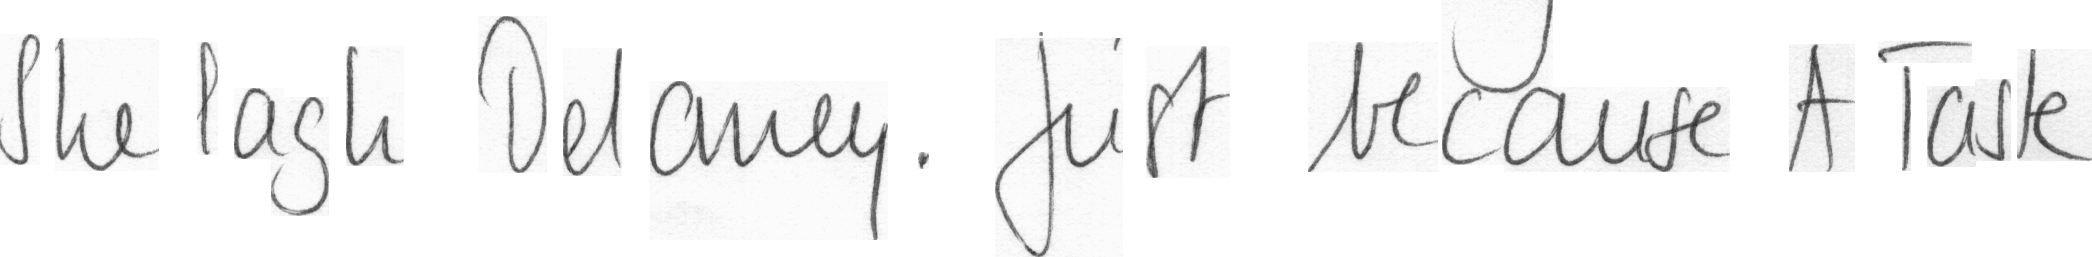 Shelagh Delaney. just because A Taste